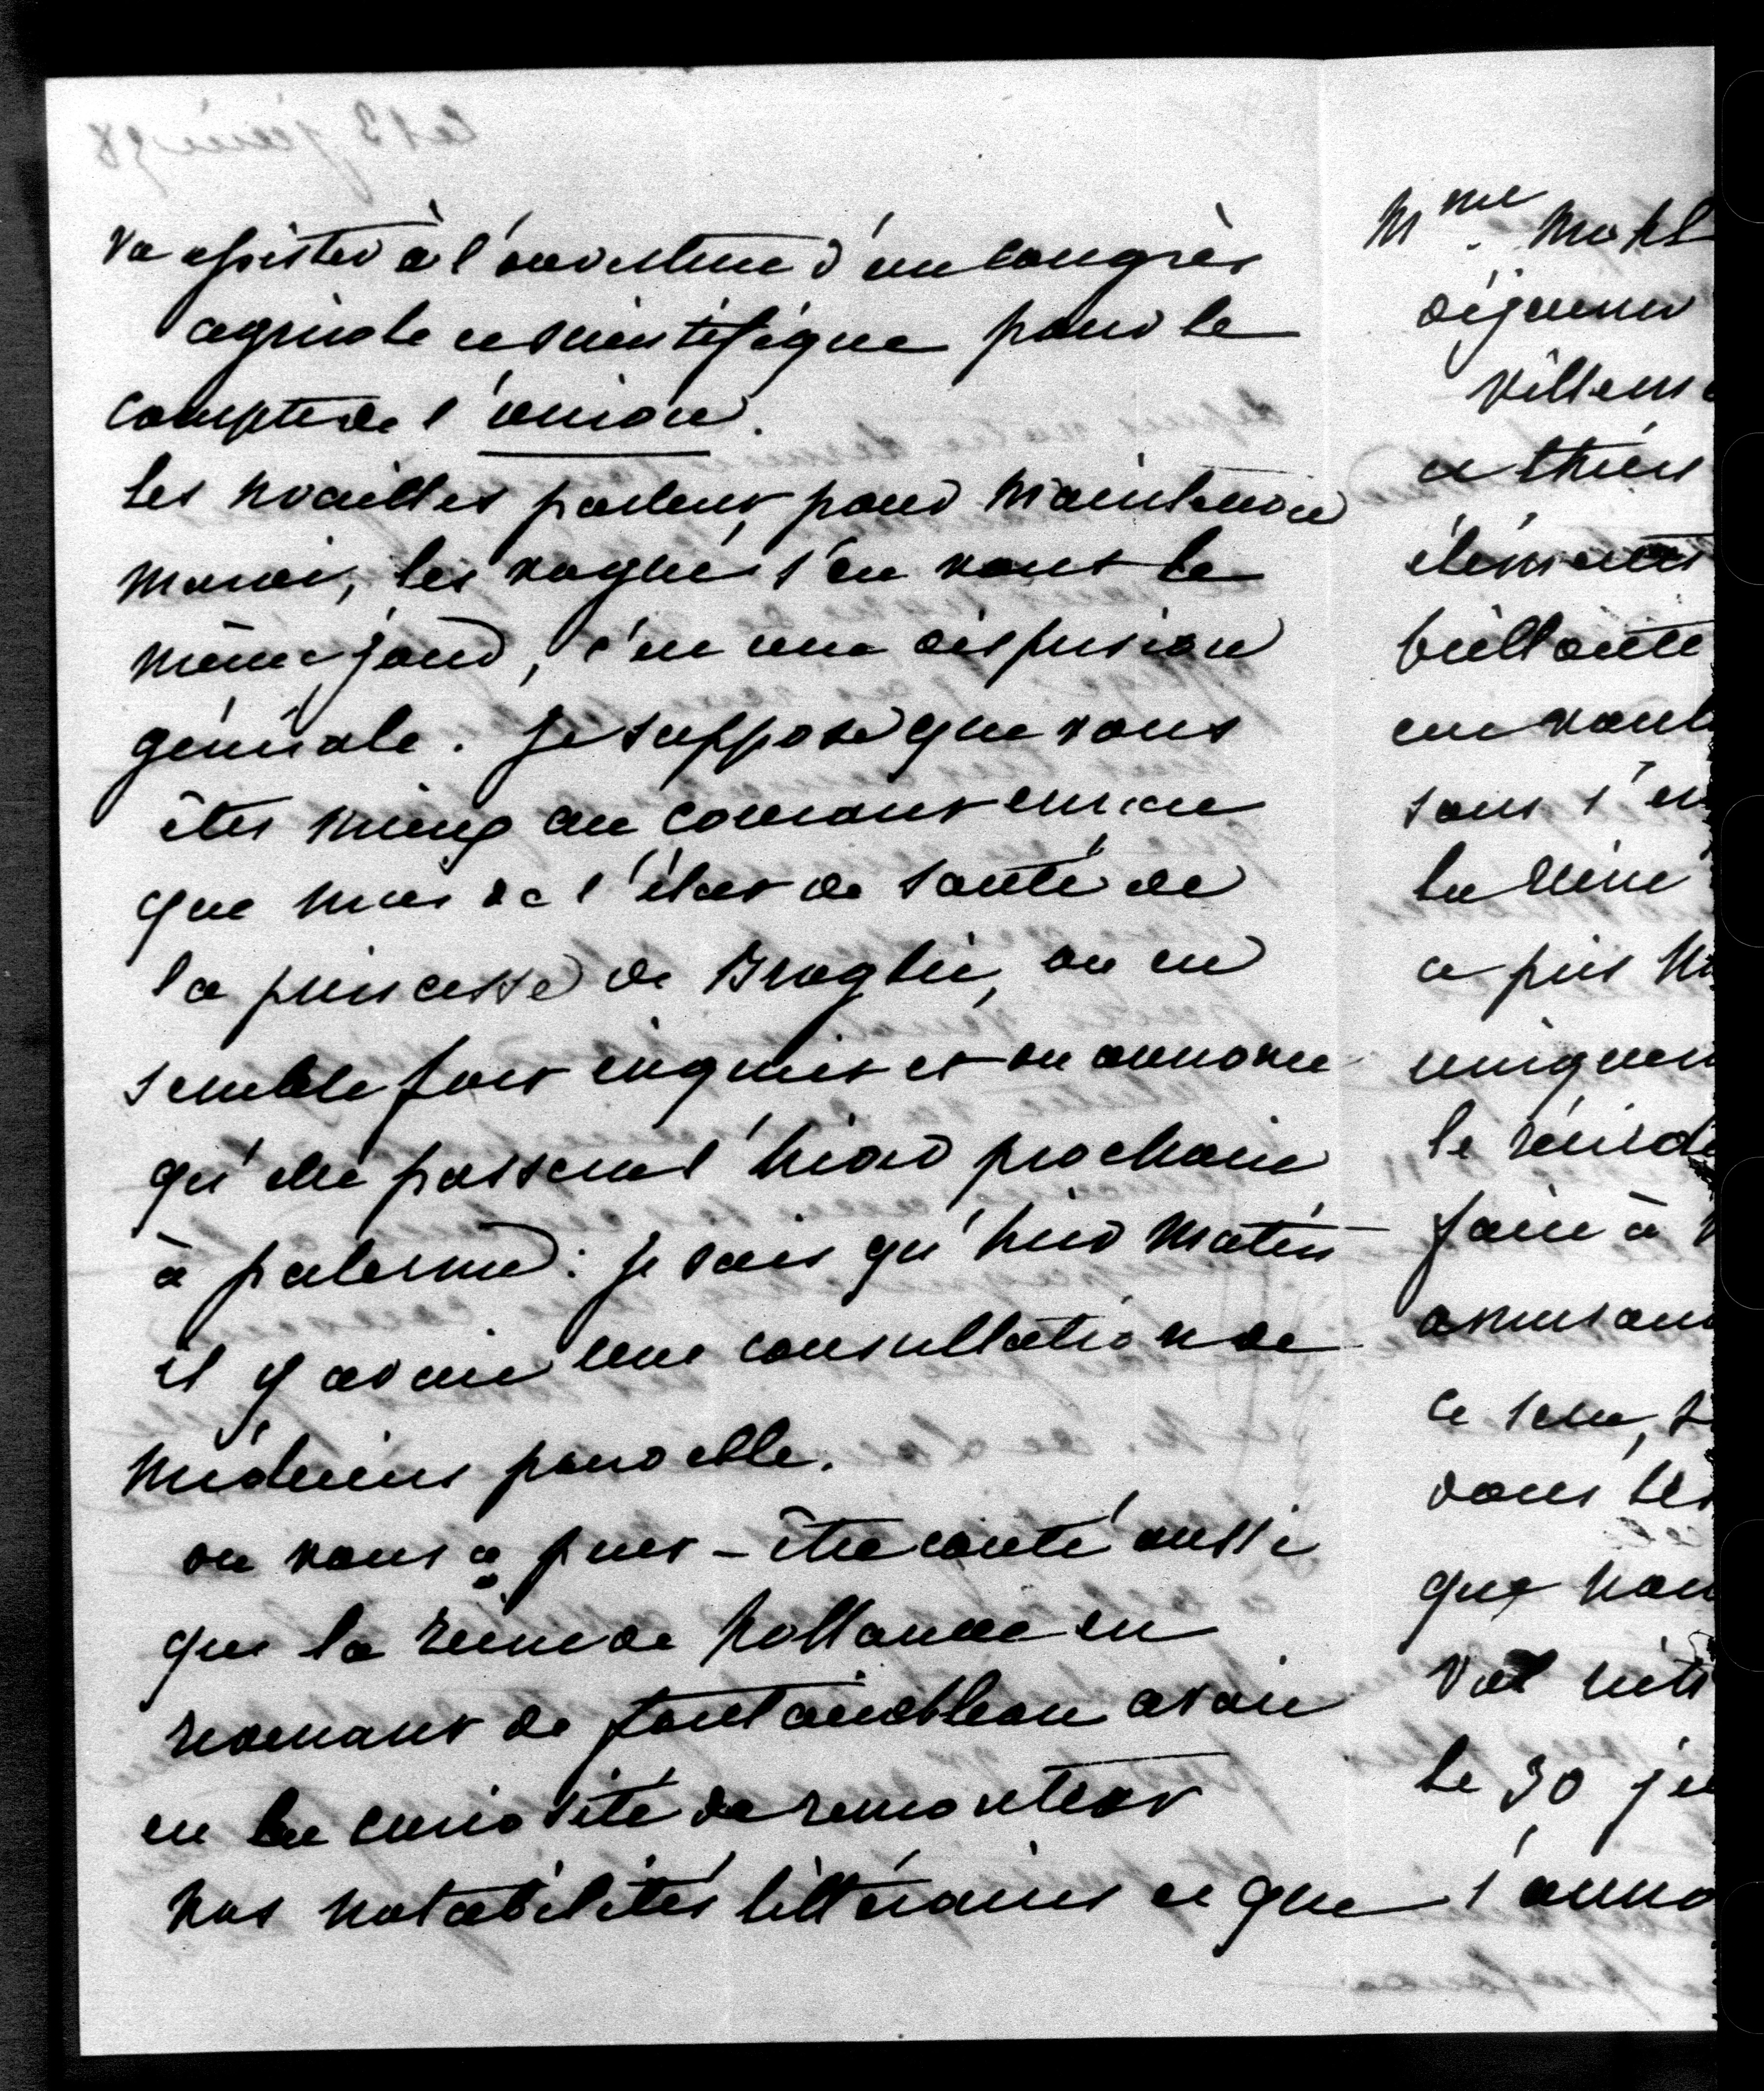 va assister à l'ouverture d'un congrès
agricole et scientifique pour le
compte de l'union.
les noailles partent pour Maintenon
mardi, les vogué s'en vont le
même jour, c'est une dispersion
générale. Je suppose que vous
êtes mieux au courant encore
que moi de l'état de santé de
la princesse de Broglie, on en
semble fort inquiet et on annonce
qu'elle passera l'hiver prochain
à palerme : je sais qu'hier matin
il y avait une consultation de
médecins pour elle.
on vous a peut-être conté aussi
que la reine de hollande en
revenant de fontainebleau avait
eu la curiosité de rencontrer
nos notabilités littéraires et que
Mme. Mohl
déjeuner
villem
et thiers
éléments
brillante
en voul
sans s'en
la reine
a pris
uniquem
le
faire à
amusan
ce
dans les
que nou
Val
le 30
s'anno